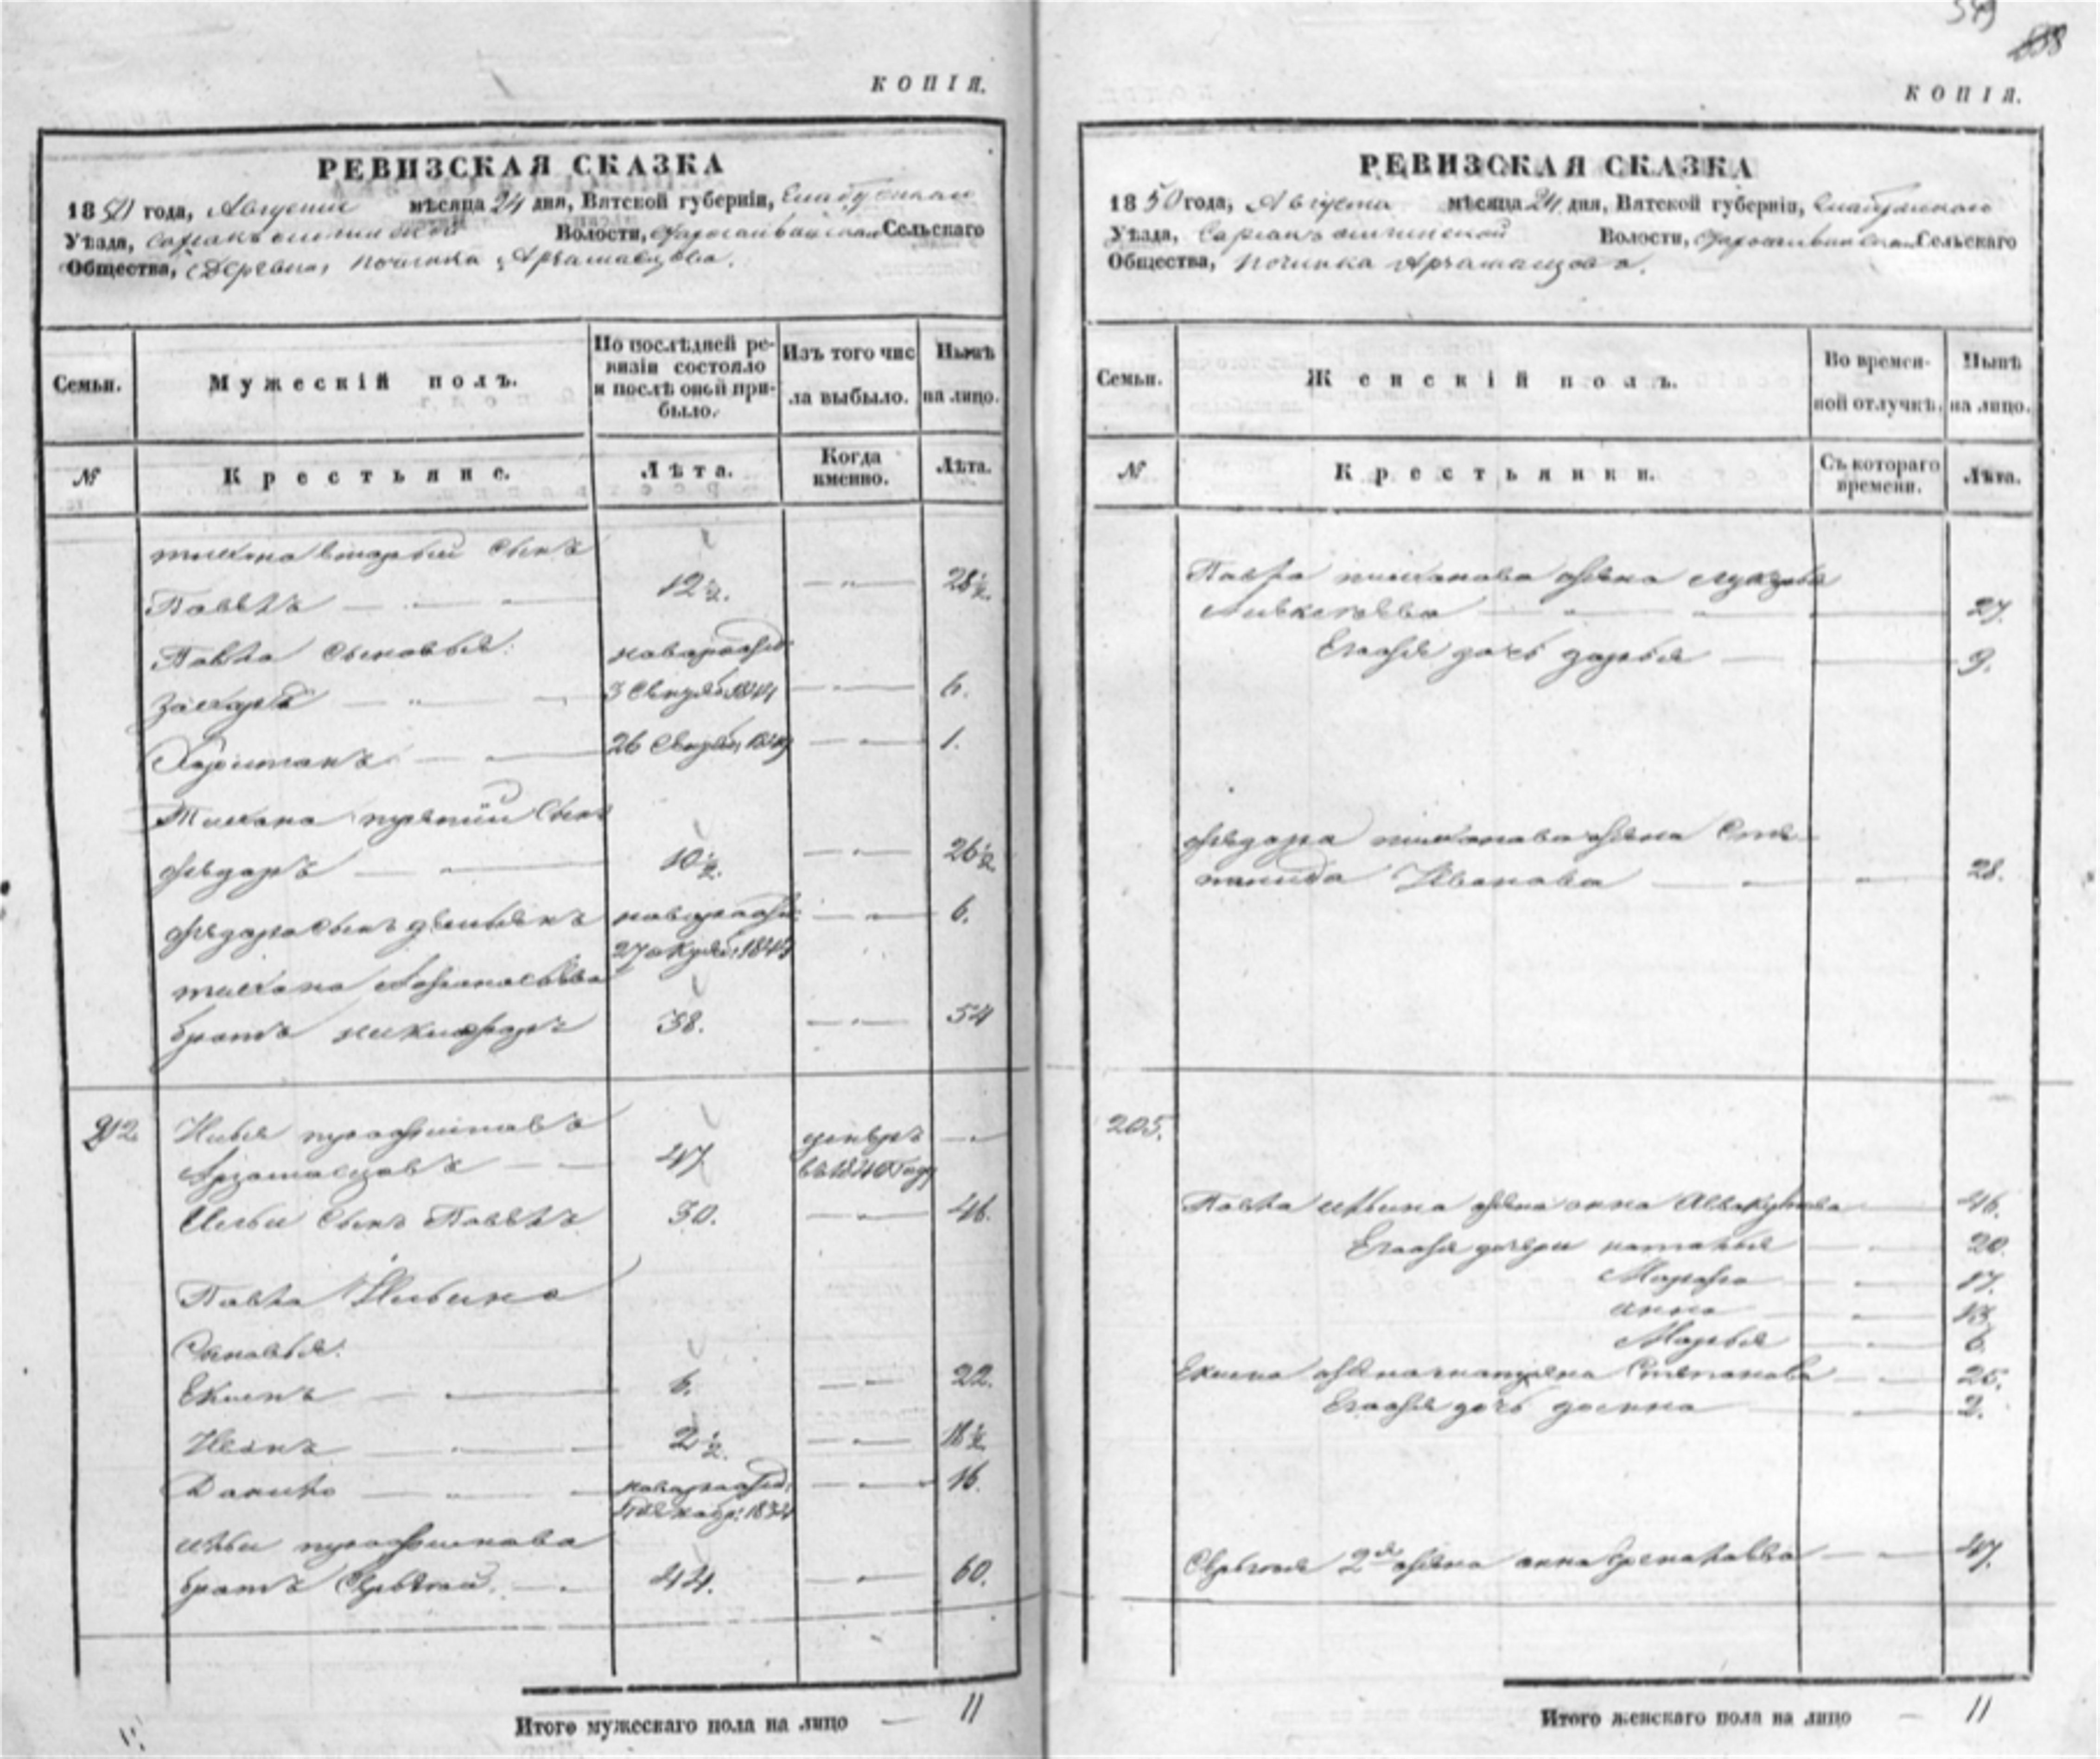 КОПІЯ.
РЕВИЗСКАЯ СКАЗКА
1850 года, Августа мѣсяца 24 дня, Вятской губерніи, Елабужскаго
Уѣзда, Волости, Сельскаго
Общества, Деревни, починка Арзамасцова.
Семьи.
Мужескій полъ.
По послѣдней ре-
визіи состояло
и послѣ оной при-
было.
Изъ того чис
ла выбыло.
Нынѣ
на лицо.
№
Крестьяне.
Лѣта.
Когда
именно.
Лѣта.
Тихона вторый сынъ
Павелъ 12½. 28½.
Павла сыновья: новорожд.
Захаръ 3 1844 6.
Харитонъ 26 1849 1.
Тихона третій сынъ
Ѳедоръ 10½. 26½.
Ѳедора сынъ Демьянъ новорожд. 6.
27 1844
Тихона Афонасьева
братъ Никифоръ 38. 54
212. Илья Трофимовъ умеръ
Арзамасцовъ 47 въ 1840 году
Ильи сынъ Павелъ 30. 46.
Павла Ильина
Сыновья:
Екимъ 6. 22.
Иванъ 2½. 18½.
Данило новорожд. 16.
декабр. 1834
Ильи Трофимова
братъ Сергѣй 44. 60.
Итого мужескаго пола на лицо — 11
549
КОПІЯ.
РЕВИЗСКАЯ СКАЗКА
1850 года, Августа мѣсяца 24 дня, Вятской губерніи, Елабужскаго
Уѣзда, Волости, Сельскаго
Общества, починка Арзамасцова.
Семьи.
Женскій полъ.
Во времен-
ной отлучкѣ.
Нынѣ
на лицо.
№
Крестьянки.
Съ котораго
времени.
Лѣта.
Павла Тихонова жена Лукерья
27.
Его же дочь Дарья 9.
Ѳедора Тихонова жена Сте-
панида Иванова 28.
205.
Павла Ильина жена Анна Аввакумова 46.
Его же дочери Наталья 20.
Марфа 17.
Анна 13.
Марья 6.
Екима жена Степанова 25.
Его же дочь 2.
Сергѣя 2я жена Анна 47.
Итого женскаго пола на лицо — 11